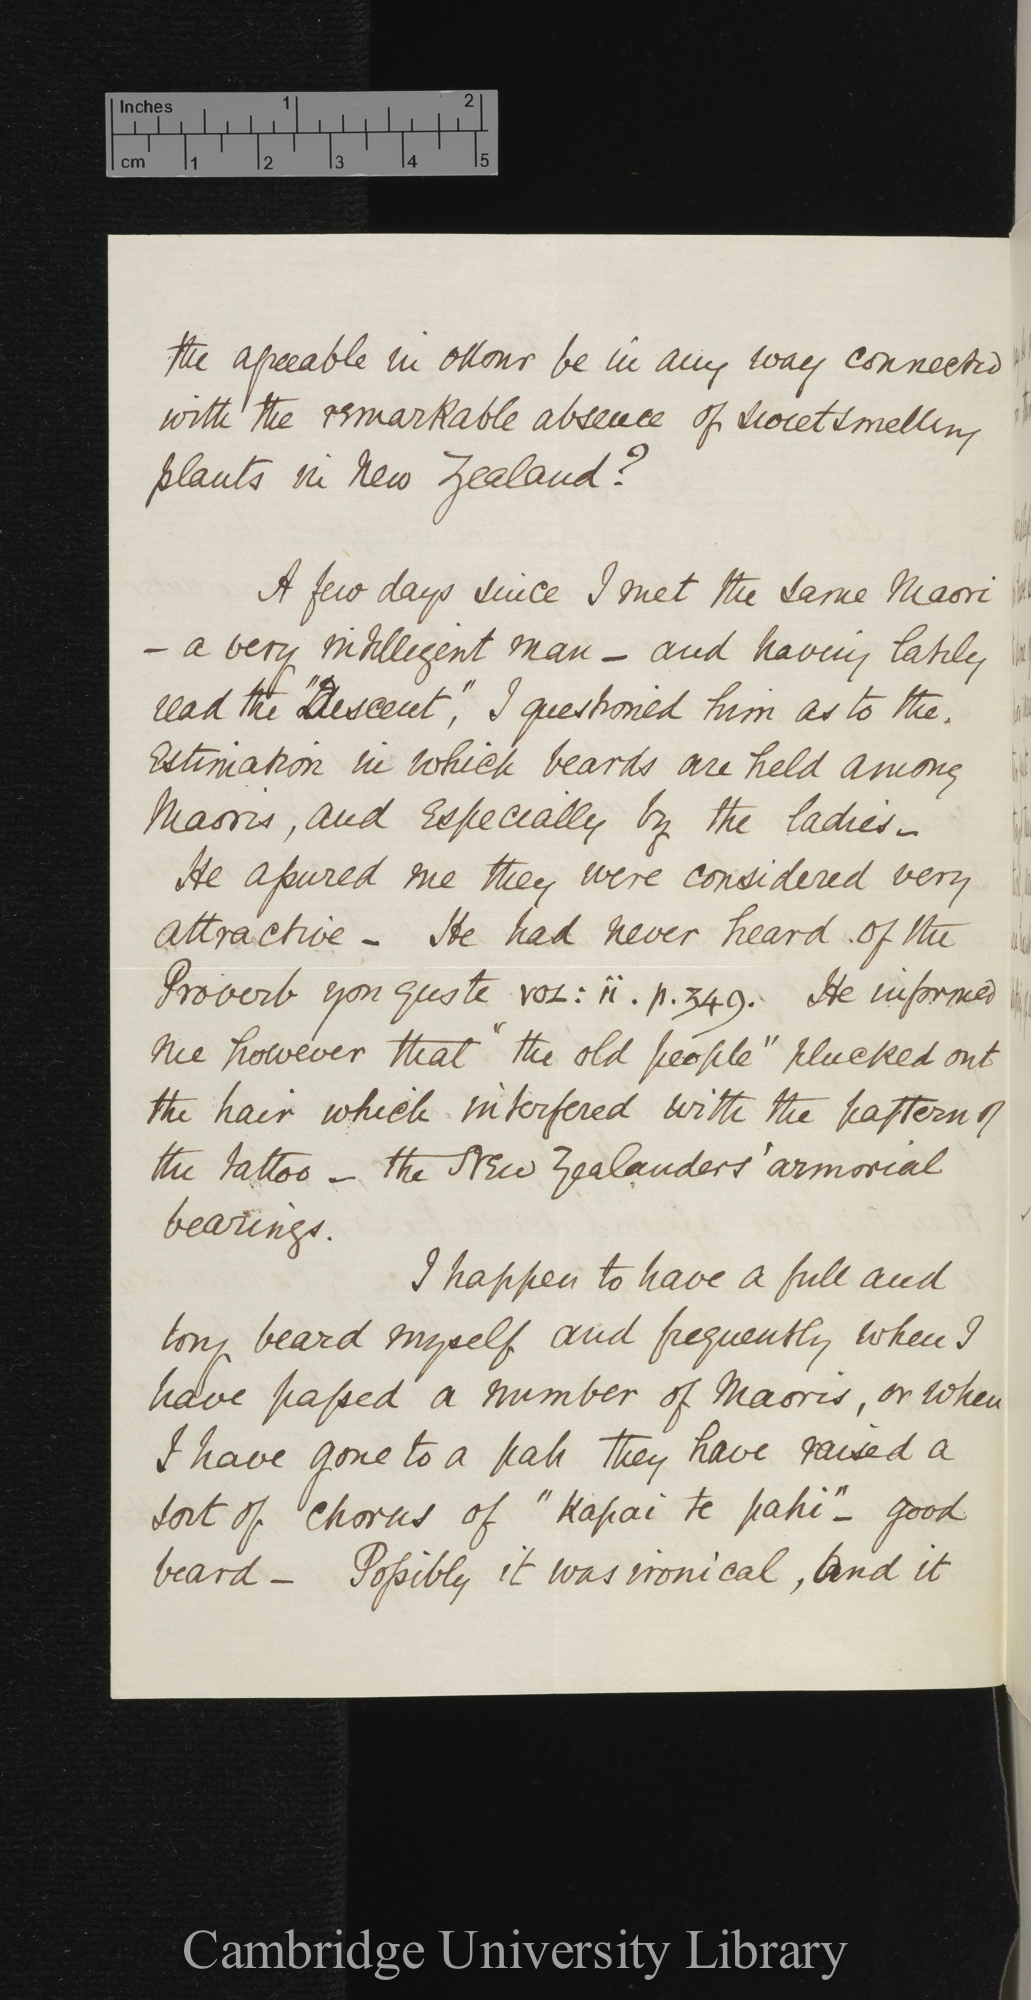 Inches 1 2
cm 1 2 3 4 5
the agreeable in odour be in any way connected
with the remarkable absence of sweetsmelling
plants in New Zealand?
A few days since I met the same Maori
– a very intelligent man – and having lately
read the "Descent", I questioned him as to the
Estimation in which beards are held among
Maoris, and Especially by the ladies –
He assured me they were considered very
attractive – He had never heard of the
Proverb you quote vol: ii. p. 349. He informed
me however that "the old people" plucked out
the hair which interfered with the pattern of
the tattoo – the New Zealanders' armorial
bearings.
I happen to have a full and
long beard myself and frequently when I
have passed a number of Maoris, or when
I have gone to a pah they have raised a
sort of chorus of "Kapai te pahi" – good
beard – Possibly it was ironical, and it
Cambridge University Library